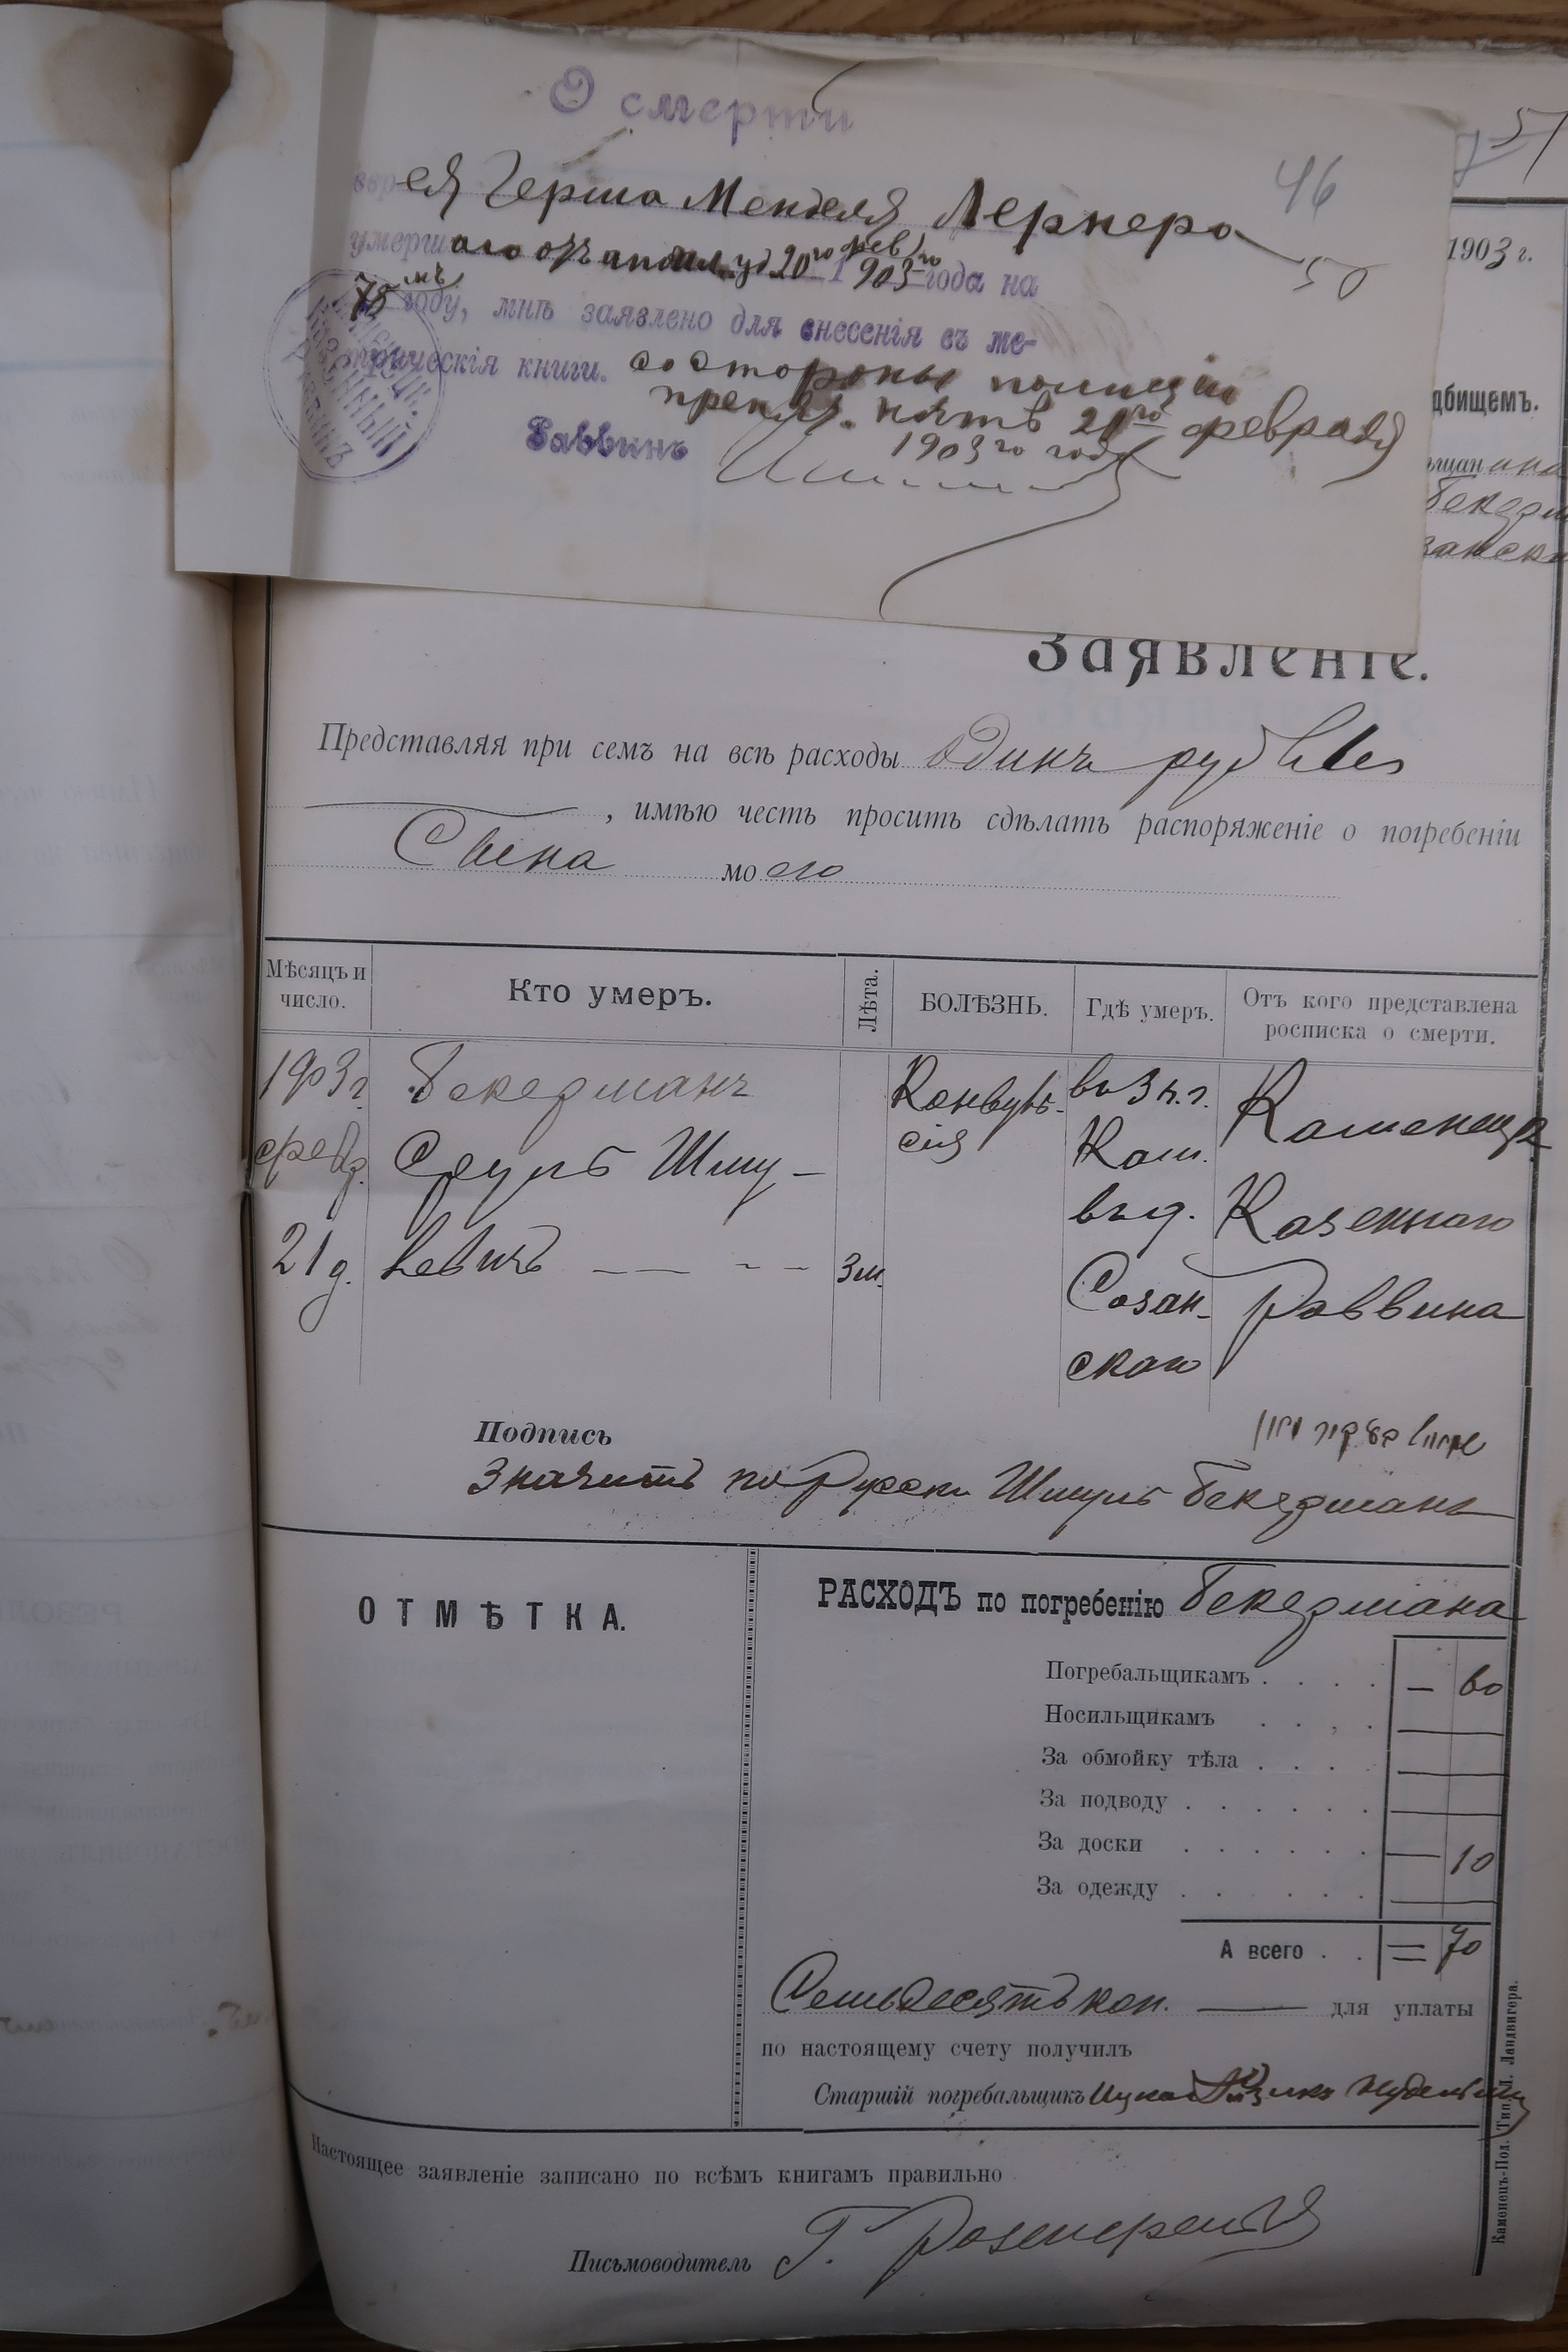 О смерти
46
51
еврея Герша Менделя Лернера
умершаго отъ апоплек. уд. 20го фев. 1903го года на
50
75мъ году, мнѣ заявлено для внесенія въ ме-
трическія книги. со стороны полиціи
препят. нѣтъ 20го февраля
1903го года
Раввинъ
КАЗЕННЫЙ
РАВВИНЪ
1903 г.
дбищемъ.
ьщанина
Бекерм
занск
Заявленіе.
Представляя при семъ на всѣ расходы одинъ рубль
, имѣю честь просить сдѣлать распоряженіе о погребеніи
Сына моего
Мѣсяцъ и число.
Кто умеръ.
Лѣта.
БОЛѢЗНЬ.
Гдѣ умеръ.
Отъ кого представлена росписка о смерти.
1903 г. Бекерманъ Конвуль- въ 3 п. г. Каменецк.
февр. Сруль Шму- сія Кам. Казеннаго
21 д. левичъ 3 м. въ д. Раввина
Созан-
скаго
Подпись
Значитъ по Русски Шмуль Бекерманъ
ОТМѢТКА.
РАСХОДЪ по погребенію Бекермана
Погребальщикамъ . . . . — 60
Носильщикамъ . . . . —
За обмойку тѣла . . . . —
За подводу . . . . . . —
За доски . . . . . . — 10
За одежду . . . . . . —
А всего . . = 70
Семьдесятъ коп. — для уплаты
по настоящему счету получилъ
Старшій погребальщикъ Ицко Нудельман
Настоящее заявленіе записано по всѣмъ книгамъ правильно
Письмоводитель Г.
Каменецъ-Под. Тип. Л. Ландвигера.